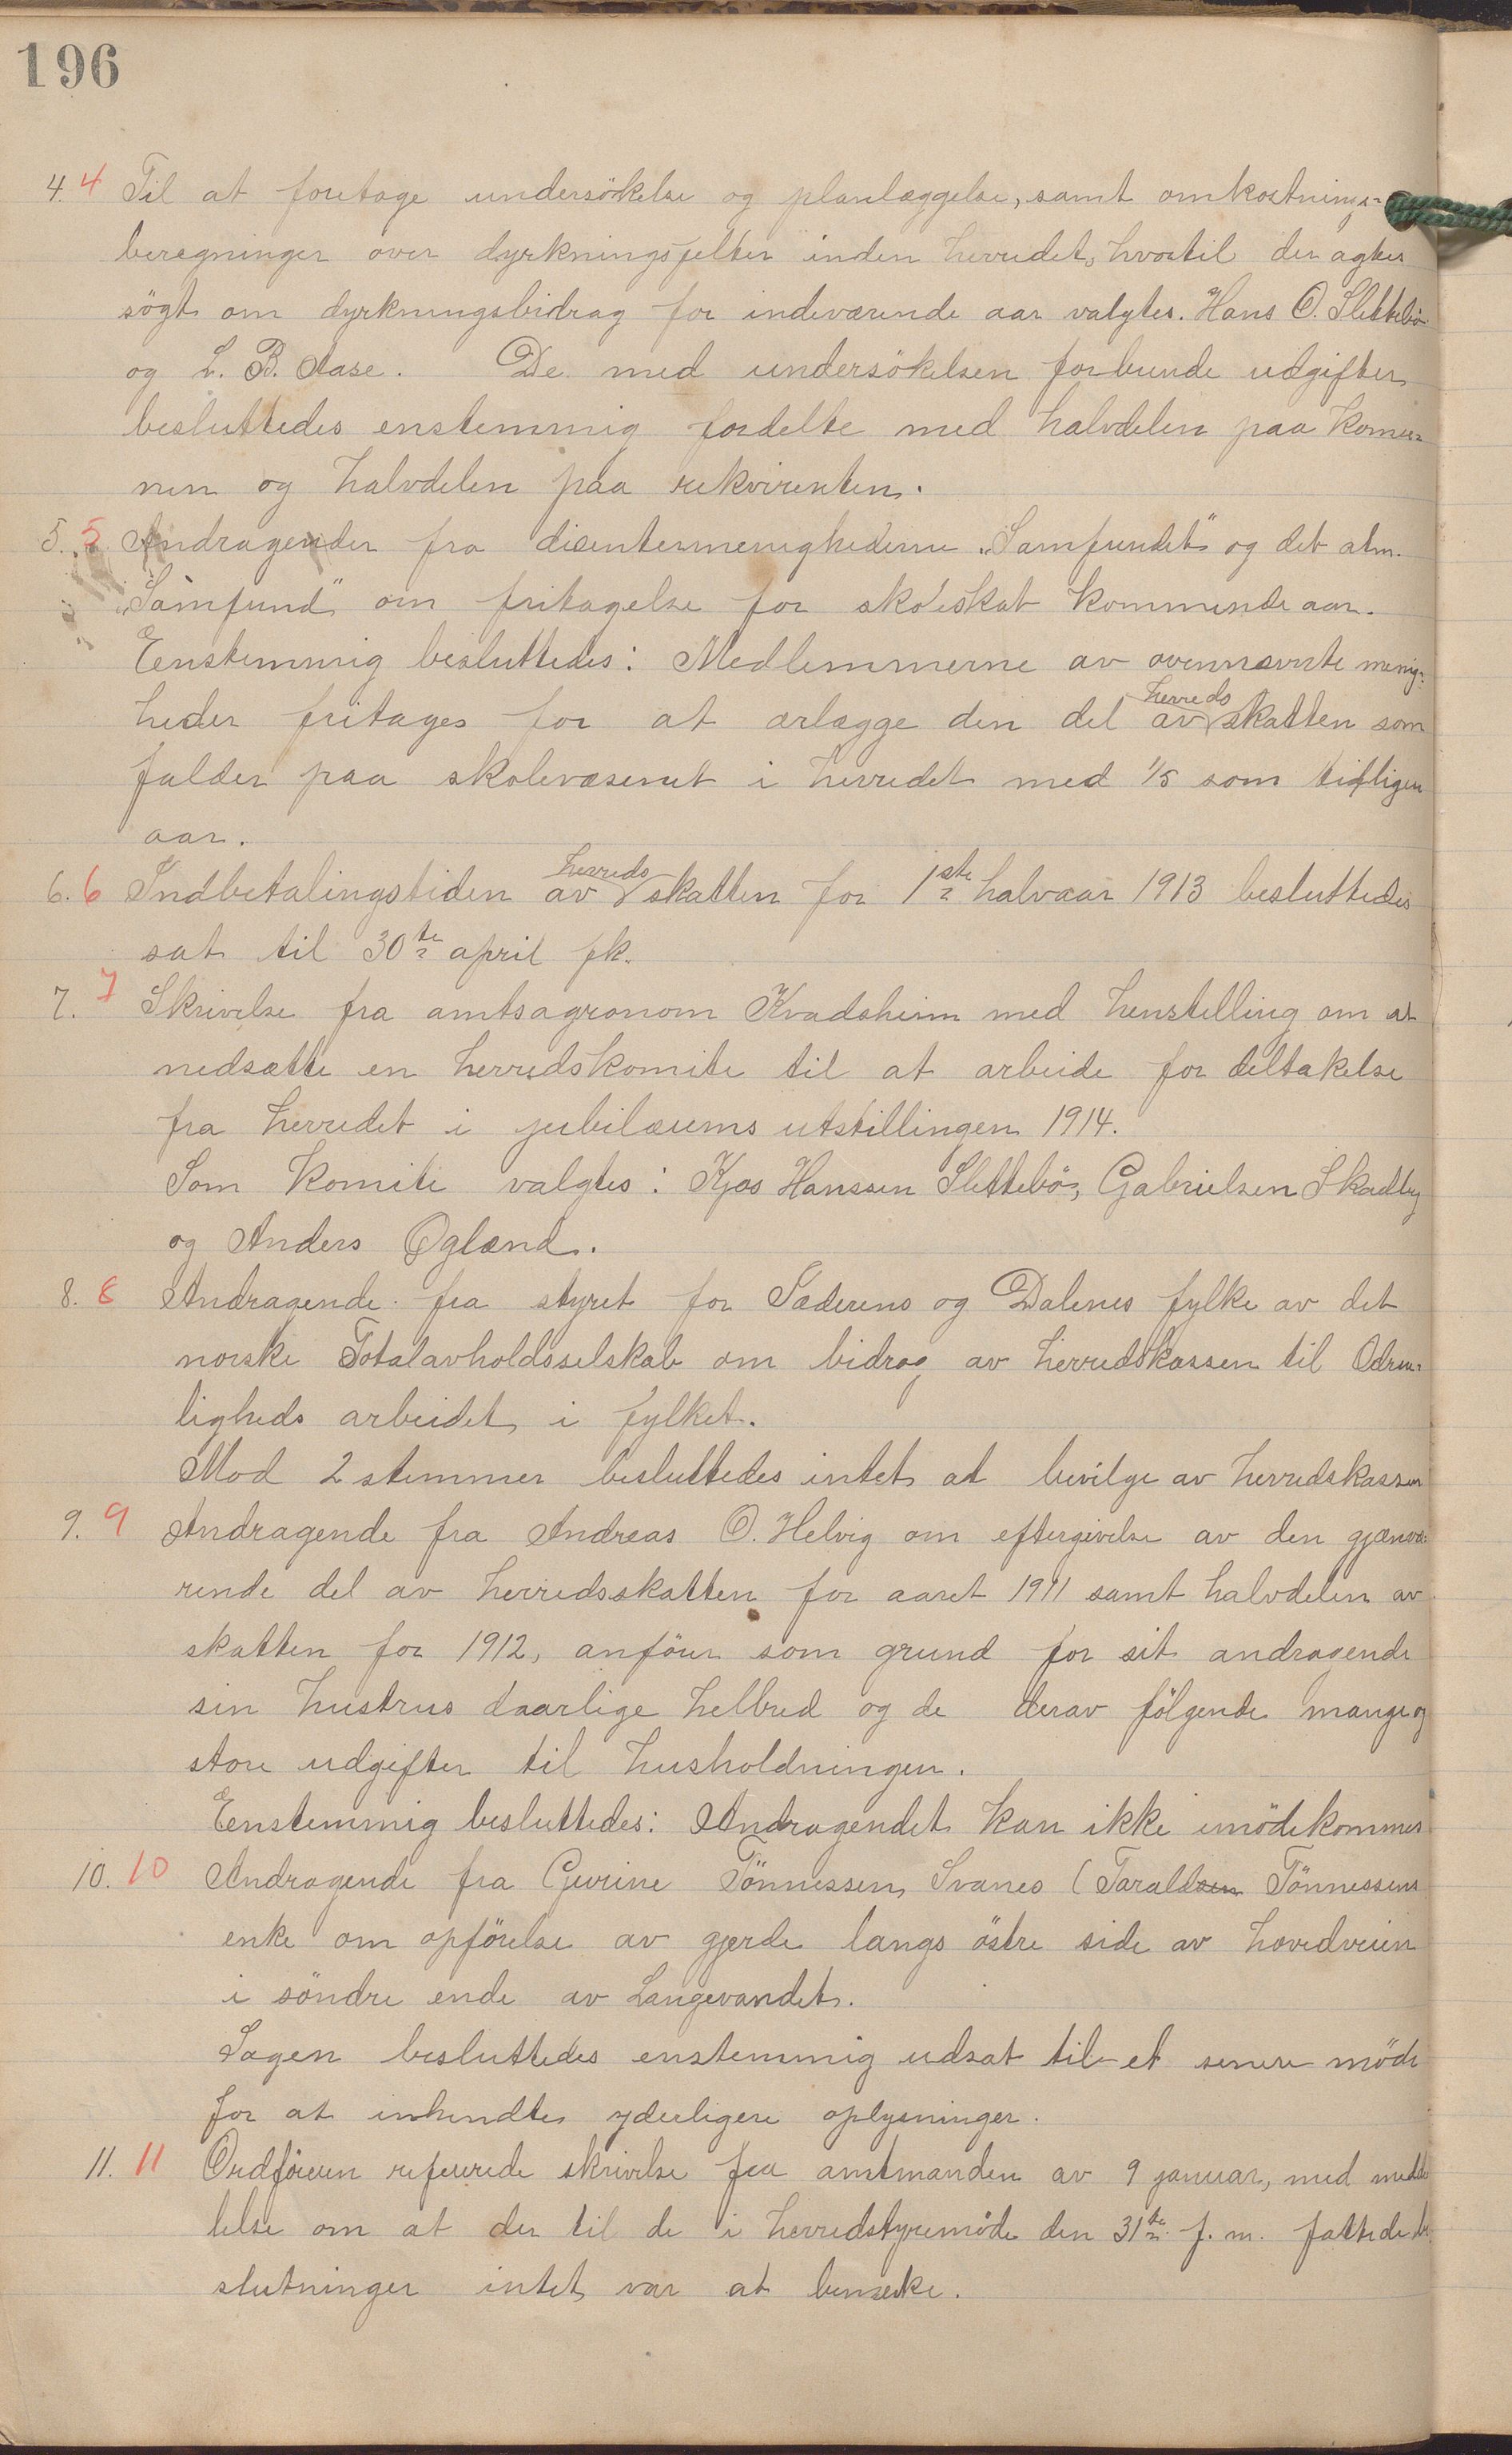 196
4. 4 Til at foretage undersökelse og planlæggelse, samt omkostnings-
beregninger over dyrkningsfelter inden herredet, hvortil der agtes
sögt om dyrkningsbidrag for indeværende aar valgtes. Hans O. Slettebö
og L. B. Aase. De med undersökelsen forbunde udgifter
besluttedes enstemmig fordelte med halvdelen paa komu-
nen og halvdelen paa rekvirenten.
5. 5 Andragender fra disentermenighederne "Samfundet" og det alm.
"Samfund" om fritagelse for skoleskat kommende aar.
Eenstemmig besluttedes: Medlemmerne av ovennævnte menig-
heder fritages for at ærlægge den del av herreds skatten som
falder paa skolevæsenet i herredet med 1/5 som tidligere
aar.
6. 6 Indbetalingstiden av herreds skatten for 1ste halvaar 1913 besluttedes
sat til 30te april fk.
7. 7 Skrivelse fra amtsagronom Kvadsheim med henstilling om at
nedsætte en herredskomite til at arbeide for deltakelse
fra herredet i jubilæums utstillingen 1914.
Som komite valgtes: Kjøs Hanssen Slettebö, Gabrielsen Skadberg
og Anders Ogland.
8. 8 Andragende fra styret for Jæderens og Dalenes fylke av det
norske Totalavholdsselskab om bidrag av herredskassen til Ædru-
ligheds arbeidet i fylket.
Mod 2 stemmer besluttedes intet at bevilge av herredskassen
9. 9 Andragende fra Andreas O. Helvig om eftergivelse av den gjenvæ-
rende del av herredsskatten for aaret 1911 samt halvdelen av
skatten for 1912, anförer som grund for sit andragende
sin hustrus daarlige helbred og de derav fölgende mange og
store udgifter til husholdningen.
Eenstemmig besluttedes: Andragendet kan ikke imödekommes
10. 10 Andragende fra Gurine Tönnessen Svanes (Taraldsen Tönnessens
enke om opförelse av gjerde langs östre side av hovedveien
i söndre ende av Langevandet.
Sagen besluttedes enstemmig udsat til et senere möde
for at inhendtes yderligere oplysninger.
11. 11 Ordföreren refererede skrivelse fra amtmanden av 9 januar, med medde-
lelse om at der til de i herredstyremöde den 31te f. m. fattede be-
slutninger intet var at bemerke.